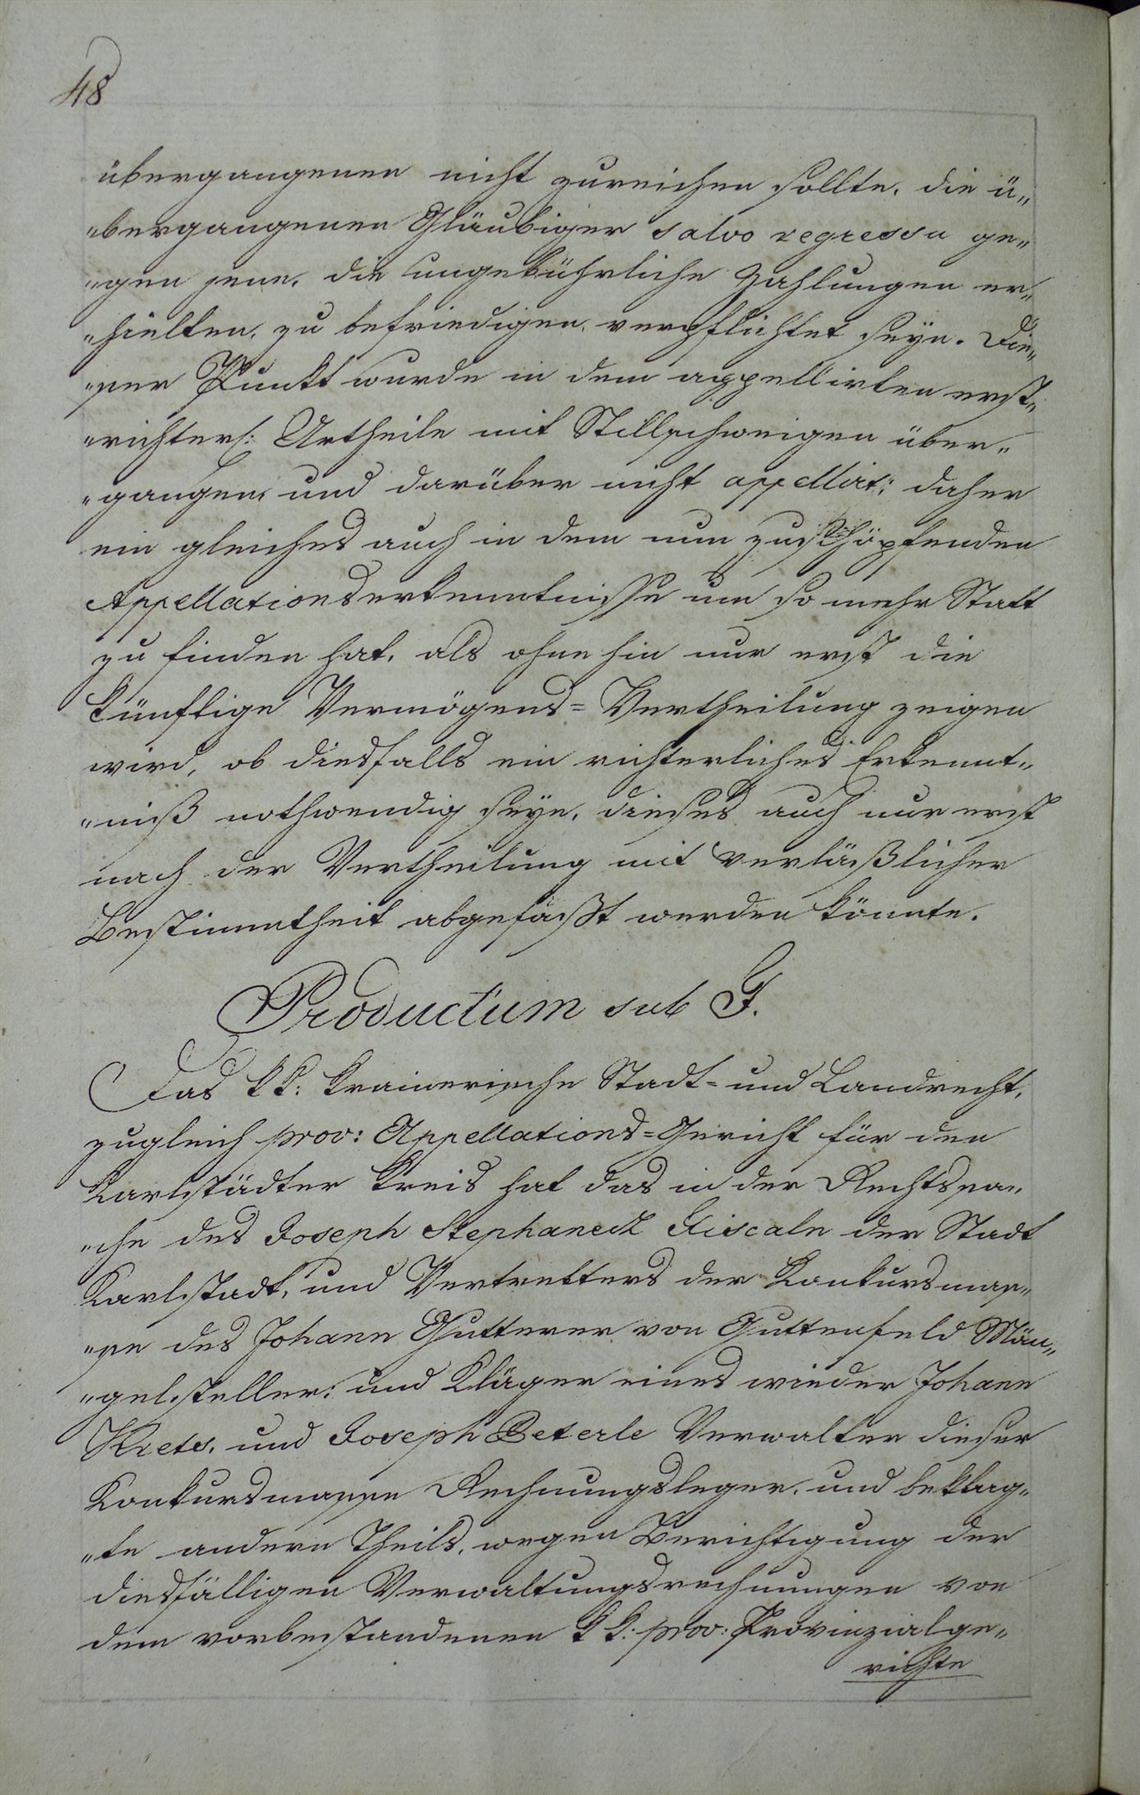 48
übergangenen nicht zureichen sollte, die ü„
„bergangenen Gläubiger salvo regressu ge„
„gen jene, die ungebührliche Zahlungen er„
„hielten, zu befriedigen verpflichtet seye. Die„
„ser Punkt wurde in dem appellirten erst„
„richterl: Urtheile mit Stillschweigen über„
„gangen, und darüber nicht appellirt; daher
ein gleiches auch in dem nun zu schöpfenden
Appellationserkenntnisse um so mehr Statt
zu finden hat, als ohnehin nur erst die
künftige Vermögens=Vertheilung zeigen
wird, ob diesfalls ein richterliches Erkennt„
„niß nothwendig seye, dieses auch nur erst
nach der Vertheilung mit verläßlicher
Bestimmtheit abgefaßt werden könnte.
Productum sub G.
Das k k: krainerische Stadt= und Landrecht,
zugleich prov: Appellations=Gericht für den
Karlstädter Kreis hat das in der Rechtssa„
„che des Joseph Stephaneck Fiscaln der Stadt
Karlstadt, und Vertretters der Konkursmas„
„se des Johann Gutterer von Guttenfeld Män„
„gelsteller, und Kläger eines wieder Johann
Krets, und Joseph Beterle Verwalter dieser
Konkursmasse Rechnungsleger, und beklag„
„te andern Theils, wegen Berichtigung der
diesfälligen Verwaltungsrechnungen von
dem vorbestandenen k k: prov: Provinzialge„
richte